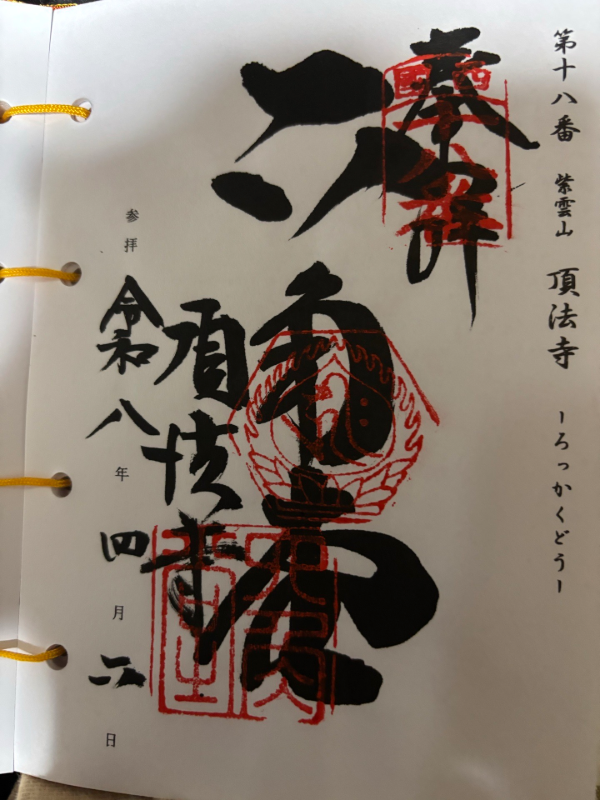 第十八番 紫雲山 頂法寺 ーろっかくどうー
奉拝
西國
十八番
六角堂
頂法寺
参拝 令和八年四月二日